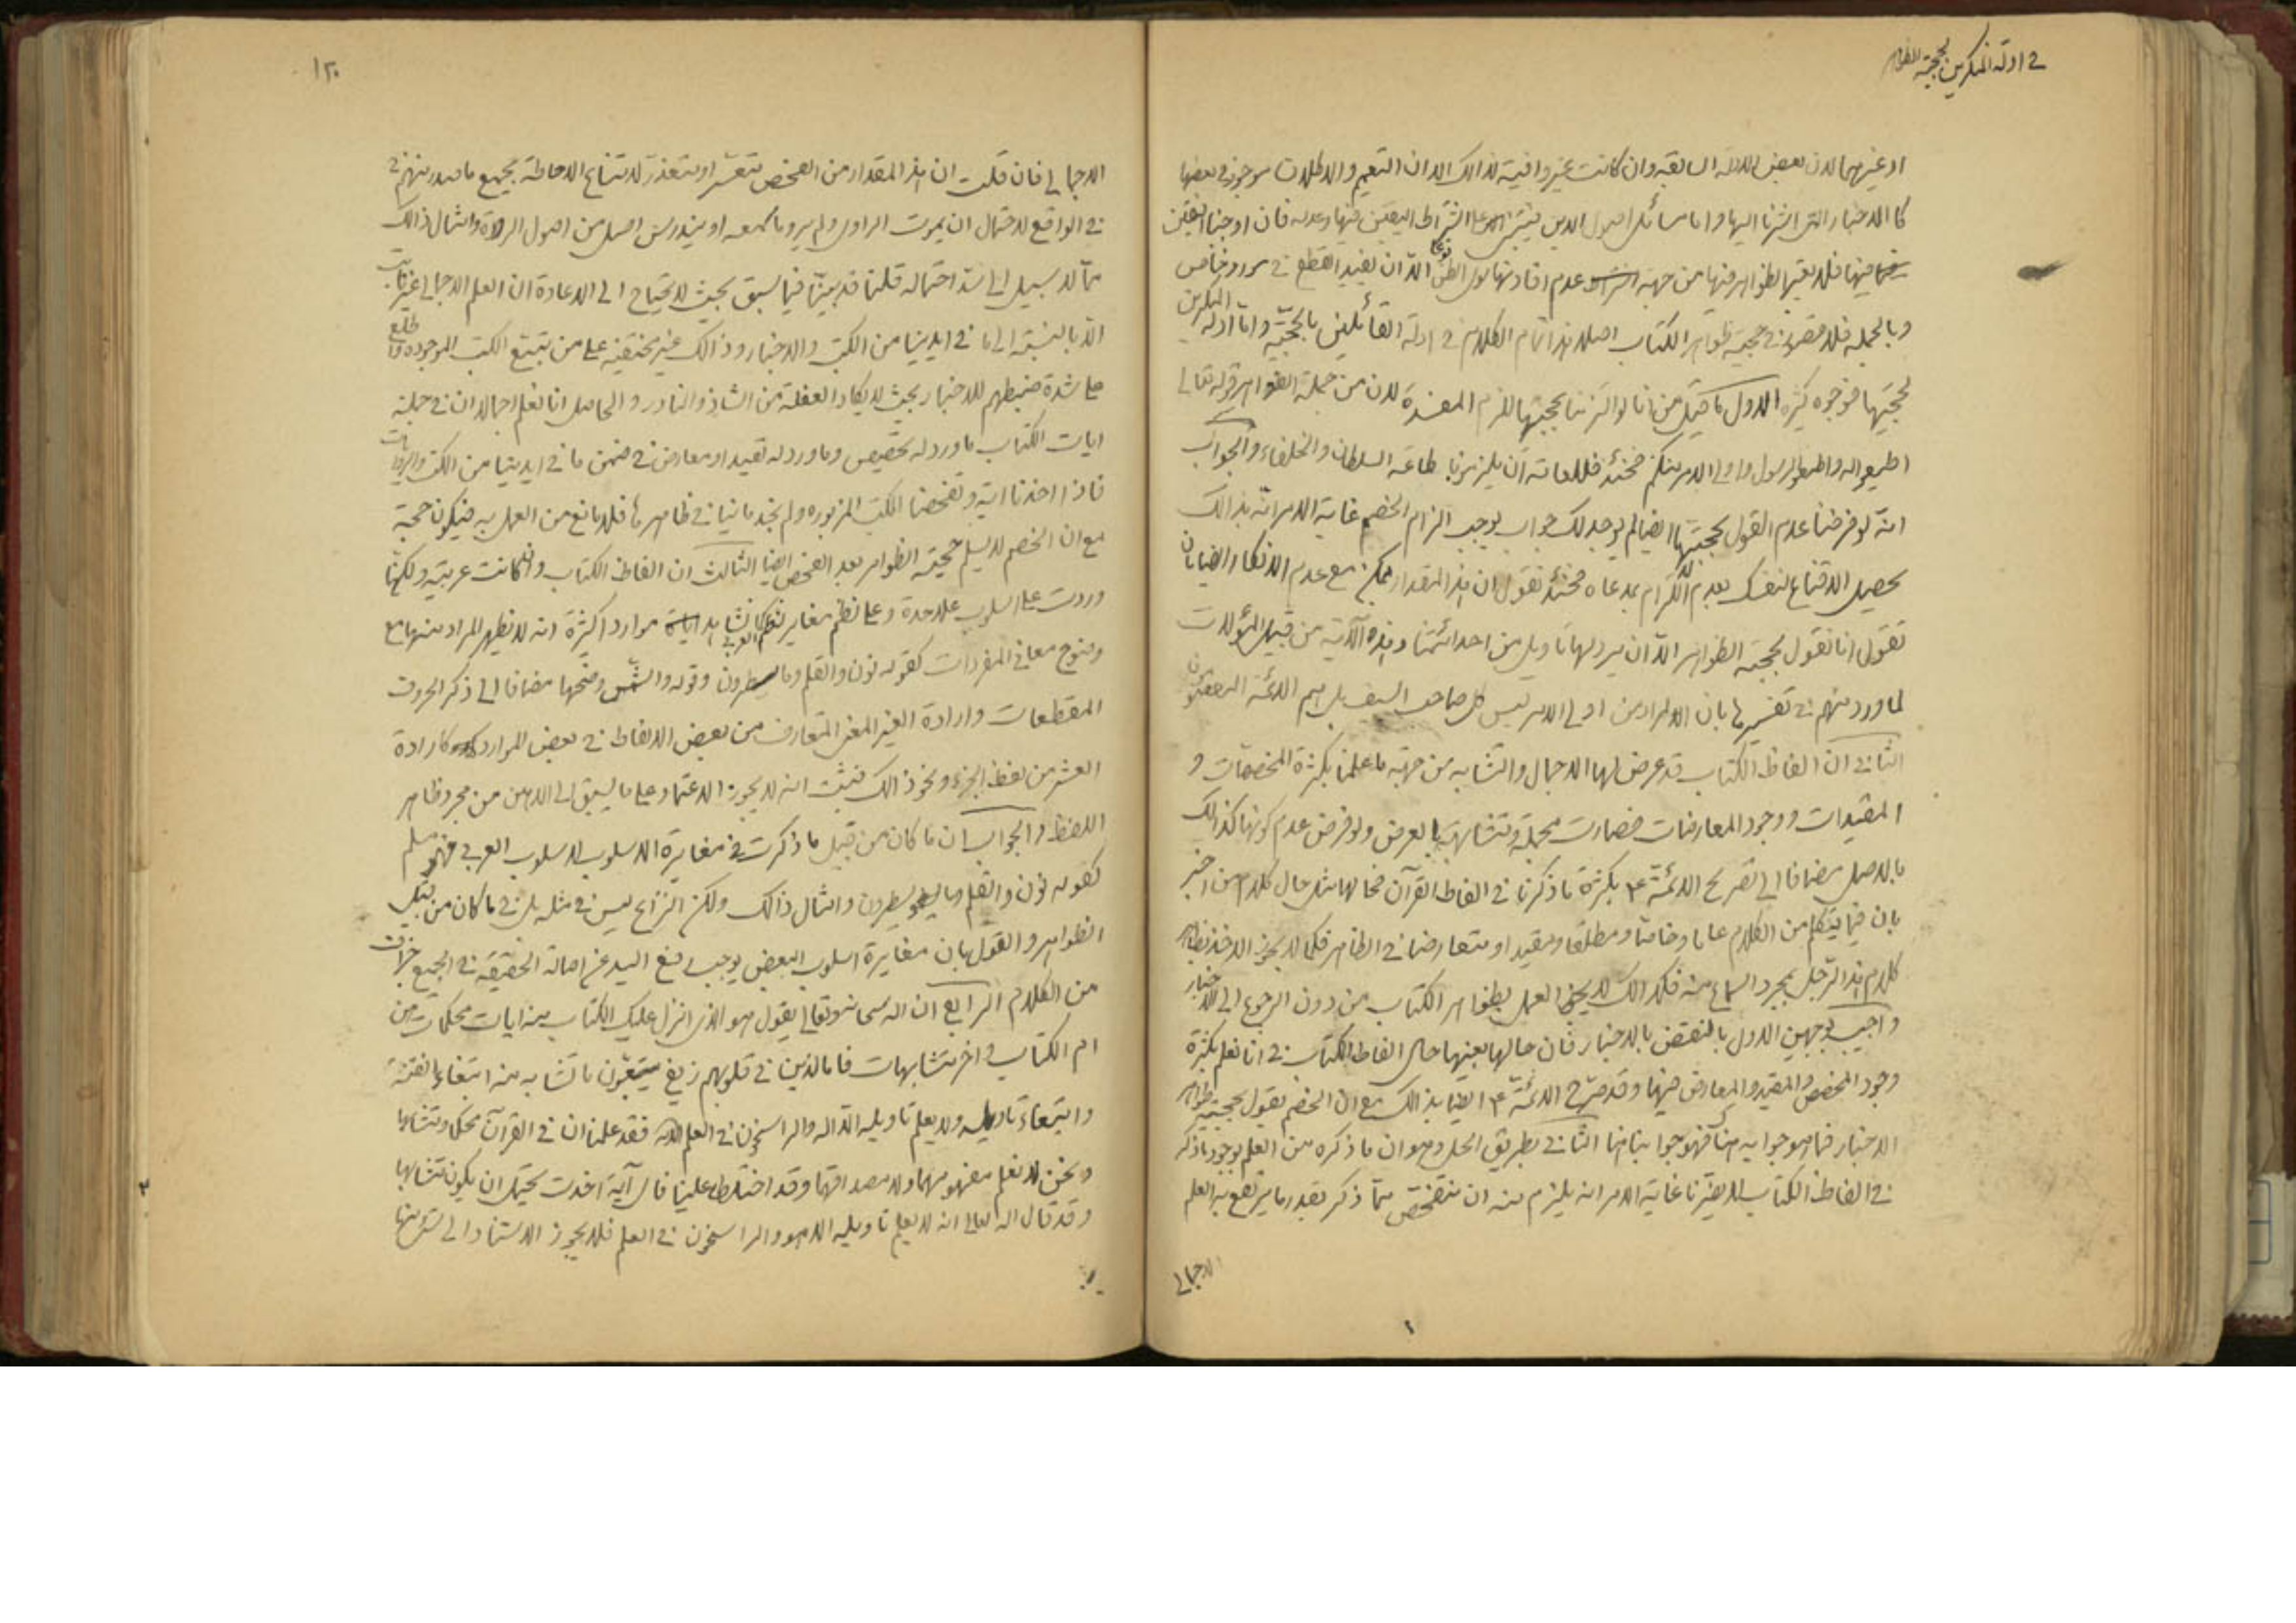 في ادلة المنكرين بحجية الظواهر
او غيرهما لان بعض الادلة السابقة وان كانت غير وافية لذالك الا ان التعميم والاطلاق موجود في بعضها
كالاخبار التي اشرنا اليها واما مسائل اصول الدين فيبتنى على اشتراط اليقين فيها وعدمه فان اوجبنا اليقين
فيها فلا يعتبر الظواهر فيها من جهة عدم افادتها سوى الظن نوعا الا ان يفيد القطع في مورد خاص
وبالجملة فلا قصور في حجية ظواهر الكتاب اصلا هذا تمام الكلام في ادلة القائلين بالحجية واما ادلة المنكرين
لحجيتها فوجوه كثيرة الاول ما قيل من انا لو التزمنا بحجيتها للزم المفسدة لان من جملة الظواهر قوله تعالى
اطيعوا الله واطيعوا الرسول واولى الامر منكم فحينئذ فللعامة ان يلزمونا بطاعة السلطان والخلفاء والجواب
انه لو فرضنا عدم القول بحجيتها ايضا لم يوجد لك جواب يوجب الزام الخصم غاية الامر انه بذالك
يحصل الاقناع لنفسك بعدم الالتزام بمدعاه فحينئذ نقول ان هذا المقدار ممكن مع عدم الانكار ايضا بان
نقول انا نقول بحجية الظواهر الا ان يرد لها تاويل من احد ائمتنا وهذه الآية من قبيل المؤولات
لما ورد منهم في تفسيرها بان المراد من اولى الامر ليس كل صاحب السيف بل هم الائمة المعصومون
الثاني ان الفاظ الكتاب قد عرض لها الاجمال والتشابه من جهة ما علمنا بكثرة المخصصات و
المقيدات ووجود المعارضات فصارت مجملة ومتشابهة بالعرض ولو فرض عدم كونها كذالك
بالاصل مضافا الى تصريح الائمة ع بكثرة ما ذكرنا في الفاظ القرآن فحالها مثل حال كلام من اخبر
بان فيما يتكلم من الكلام عاما وخاصا ومطلقا ومقيدا ومتعارضا في الظاهر فكما لا يجوز الاخذ بظاهر
كلام هذا الرجل بمجرد السماع منه فكذالك لا يجوز العمل بظواهر الكتاب من دون الرجوع الى الاخبار
واجيب بوجهين الاول بالنقض بالاخبار فان حالها بعينها حال الفاظ الكتاب في انا نعلم بكثرة
وجود المخصص والمقيد والمعارض فيها وقد صرح الائمة ع ايضا بذالك مع ان الخصم يقول بحجية ظواهر
الاخبار فما هو جوابه هناك فهو جوابنا هنا الثاني بطريق الحل وهو ان ما ذكره من العلم بوجود ما ذكر
في الفاظ الكتاب لا يضرنا غاية الامر انه يلزم منه ان نتفحص مما ذكر بقدر ما يرتفع به العلم
الاجمالي
١٢٠
الاجمالي فان قلت ان هذا المقدار من الفحص متعسر او متعذر لامتناع الاحاطة بجميع ما صدر منهم في
في الواقع لاحتمال ان يموت الراوي ولم يرو ما سمعه او يندرس اصل من اصول الرواة وامثال ذالك
مما لا سبيل الى سد احتماله قلنا قد بينا فيما سبق بحيث لا يحتاج الى الاعادة ان العلم الاجمالي غير ثابت
الا بالنسبة الى ما في ايدينا من الكتب والاخبار وذالك غير مختفية على من تتبع الكتب الموجودة واطلع
على شدة ضبطهم للاخبار بحيث لا يكاد الغفلة من الشاذ والنادر والحاصل انا نعلم اجمالا ان في جملة
ايات الكتاب ما ورد له تخصيص وما ورد له تقييد او معارض في ضمن ما في ايدينا من الكتب والروايات
فاذا اخذنا آية وتفحصنا الكتب المزبورة ولم نجد ما ينافي ظاهرها فلا مانع من العمل به فيكون حجة
مع ان الخصم لا يسلم حجية الظواهر بعد الفحص ايضا الثالث ان الفاظ الكتاب وان كانت عربية ولكنها
وردت على اسلوب علاحدة وعلى نظم مغاير لنظم العرب كما نشاهد موارد كثيرة انه لا يظهر المراد منها مع
وضوح معاني المفردات كقوله نون والقلم وما يسطرون وقوله والشمس وضحها مضافا الى ذكر الحروف
المقطعات وارادة الغير المعنى المتعارف من بعض الالفاظ في بعض الموارد كارادة
العشر من لفظ الجزء ونحو ذالك فيثبت انه لا يجوز الاعتماد على ما يسبق الى الذهن من مجرد ظاهر
اللفظ والجواب ان ما كان من قبيل ما ذكرت في مغايرة الاسلوب لاسلوب العرب فهو مسلم
كقوله نون والقلم وما يسطرون وامثال ذالك ولكن النزاع ليس في مثله بل في ما كان من قبيل
الظواهر والقول بان مغايرة اسلوب البعض يوجب رفع اليد عن اصالة الحقيقة في الجميع جزاف
من الكلام الرابع ان الله سبحانه وتعالى يقول هو الذي انزل عليك الكتاب منه ايات محكمات هن
ام الكتاب واخر متشابهات فاما الذين في قلوبهم زيغ فيتبعون ما تشابه منه ابتغاء الفتنة
وابتغاء تاويله ولا يعلم تاويله الا الله والراسخون في العلم الاية فقد علمنا ان في القرآن محكما ومتشابها
ونحن لا نعلم مفهومهما ولا مصداقهما وقد اختلط علينا فاى آية اخذت يحتمل ان يكون متشابها
وقد قال الله تعالى انه لا يعلم تاويله الا هو والراسخون في العلم فلا يجوز الاستناد الى شئ منها